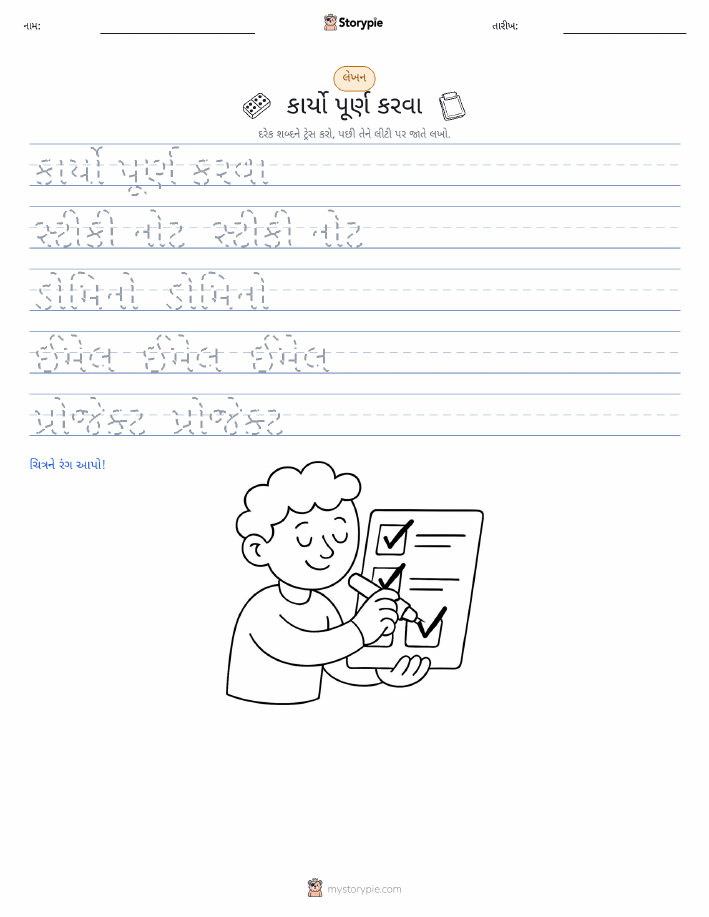 નામ:
Storypie
તારીખ:
લેખન
કાર્યો પૂર્ણ કરવા
દરેક શબ્દને ટ્રેસ કરો, પછી તેને લીટી પર જાતે લખો.
કાર્યો પૂર્ણ કરવા
સ્ટીકી નોટ સ્ટીકી નોટ
ડોમિનો ડોમિનો
ઈમેલ ઈમેલ ઈમેલ
પ્રોજેક્ટ પ્રોજેક્ટ
ચિત્રને રંગ આપો!
mystorypie.com